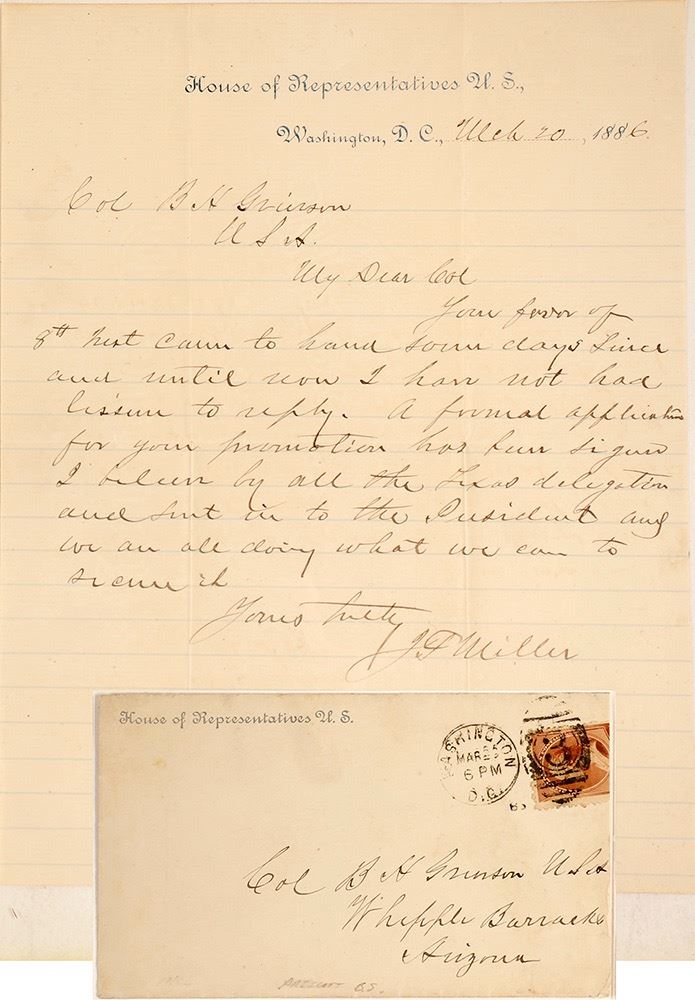 House of Representatives U. S.,
Washington, D. C., Mch 20, 1886.
Col B H Grierson
U S A.
My Dear Col
Your favor of
8th Inst came to hand some days since
and until now I have not had
leisure to reply. A formal application
for your promotion has been signed
I believe by all the Texas delegation
and sent in to the President and
we are all doing what we can to
secure it
Yours truly
J F Miller
House of Representatives U. S.
WASHINGTON
MAR
6 PM
D.C.
Col B H Grierson U S A
Whipple Barracks
Arizona